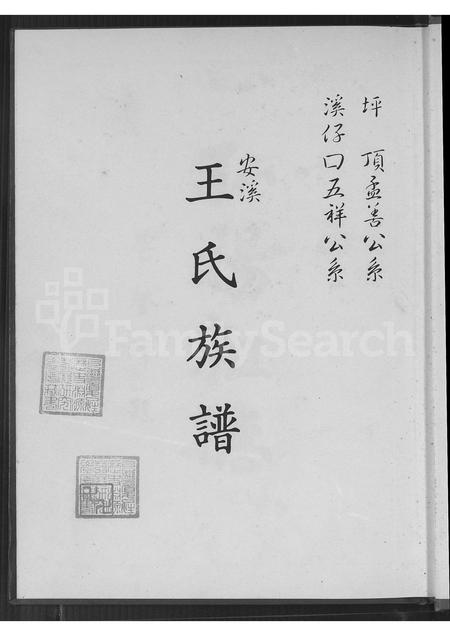 坪頂孟善公系
溪仔口五祥公系
安溪
王氏族譜
FamilySearch